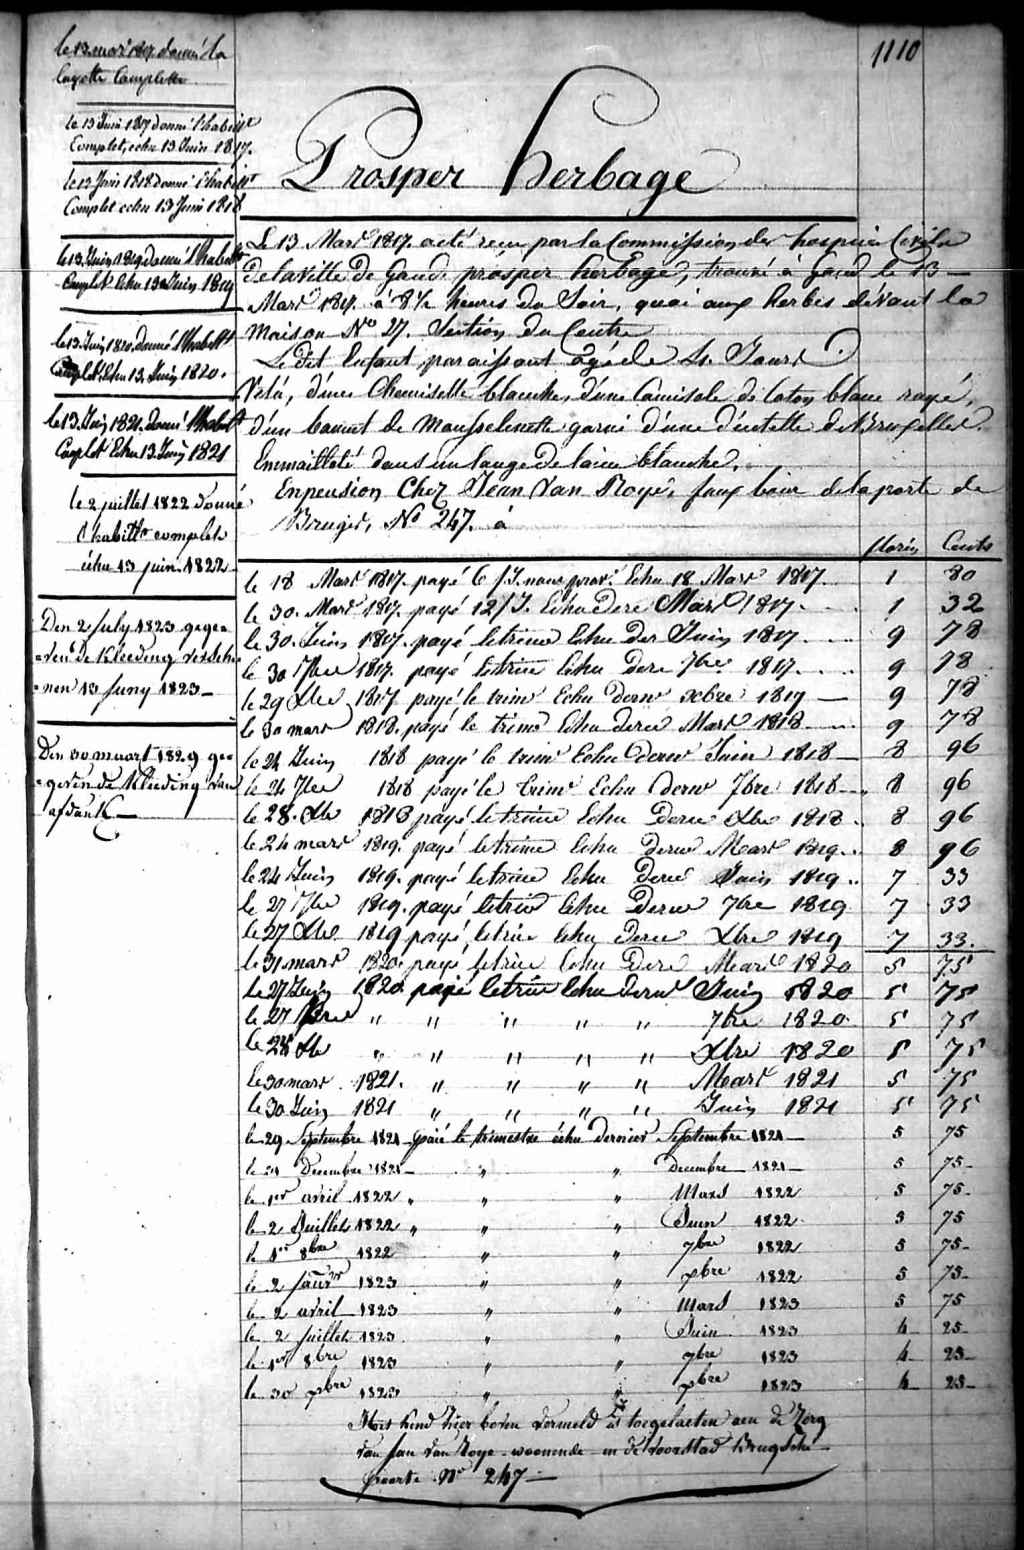 1110
le 13 mars 1817 donné la
layette Complette
le 13 Juin 1817 donné l'habillt
Complet, echu 13 Juin 1817.
le 13 Juin 1818 donné l'habillt
Complet echu 13 Juin 1818
le 13 Juin 1819 donné l'habillt
Complet Echu 13 Juin 1819
le 13 Juin 1820 donné l'habillt
Complet Echu 13 Juin 1820.
le 13 Juin 1821 donné l'habillt
Complet Echu 13 Juin 1821
le 2 juillet 1822 donné
l'habillt complet
échu 13 juin 1822
Den 2 July 1823 gege=
=ven de Kleeding verschee
=nen 13 Juny 1823 —
Den 30 maart 1829 ge=
=geven de Kleeding van
afdank —
Prosper herbage
Le 13 Mars 1817. a été reçu par la Commission des hospices Civils
de la Ville de Gand, prosper herbage, trouvé à Gand le 13 —
Mars 1817. à 8½ heures du Soir, quai aux herbes devant la
Maison No 27. Section du Centre
Le dit Enfant paraissant âgé de 4 Jours
Vêtu, d'une Chemisette blanche, d'une Camisole de Coton blanc rayé,
d'un bonnet de Mousselinette garni d'une dentelle de Bruxelles.
Emmailloté dans un lange de laine blanche.
En pension Chez Jean Van Roye, faux bourg de la porte de
Bruges, No 247. à
florins Cents
le 18 Mars 1817. payé Echu 18 Mars 1817 1 80
le 30. Mars 1817. payé 12/J. Echu Dere Mars 1817. 1 32
le 30. Juin 1817. payé letrime Echu Der Juin 1817. 9 78
le 30 7bre 1817. payé letrime Echu Dere 7bre 1817. 9 78
le 29 Xbre 1817 payé le trime Echu derne xbre 1817 — 9 78
le 30 mars 1818. payé le trime Echu derne Mars 1818 9 78
le 24 Juin 1818 payé le trime Echu derne Juin 1818 — 8 96
le 24 7bre 1818 payé le trime Echu derne 7bre 1818 — 8 96
le 28. Xbre 1818 payé letrime Echu Derne Xbre 1818. 8 96
le 24 mars 1819. payé letrime Echu derne Mars 1819. 8 96
le 24 Juin 1819. payé letrime Echu Derne Juin 1819. 7 33
le 27 7bre 1819. payé letrime Echu Derne 7bre 1819 7 33
le 27 Xbre 1819 payé letrime Echu derne Xbre 1819 7 33.
le 31 mars 1820. payé letrime Echu Dere Mars 1820 5 75
Le 27 Juin 1820. payé letrime Echu derne Juin 1820 5 75
le 27 7bre " " " " " 7bre 1820. 5 75
le 28 Xbre " " " " " Xbre 1820 5 75
le 30 mars 1821. " " " " Mars 1821 5 75
le 30 Juin 1821 " " " " Juin 1821 5 75
le 29 Septembre 1821 payé le trimestre échu dernier Septembre 1821 — 5 75
le 31 Decembre 1821 — " " Decembre 1821 — 5 75 —
le 1er avril 1822 " " " Mars 1822 5 75 —
le 2 Juillet 1822 " " " Juin 1822 5 75
le 1er 8bre 1822 " " 7bre 1822 5 75 —
le 2 Janvr 1823 " " xbre 1822 5 75 —
le 2 avril 1823 " " Mars 1823 5 75
le 2 Juillet 1823 " " Juin 1823 4 25 —
le 1er 8bre 1823 " " 7bre 1823 4 25 —
le 30 xbre 1823 " " xbre 1823 4 25 —
Het Kind hier boven vermeld is toegelaeten aen de Zorg
van Jan Van Roye woonende in de voorstad Brugsche
poorte No 247 —